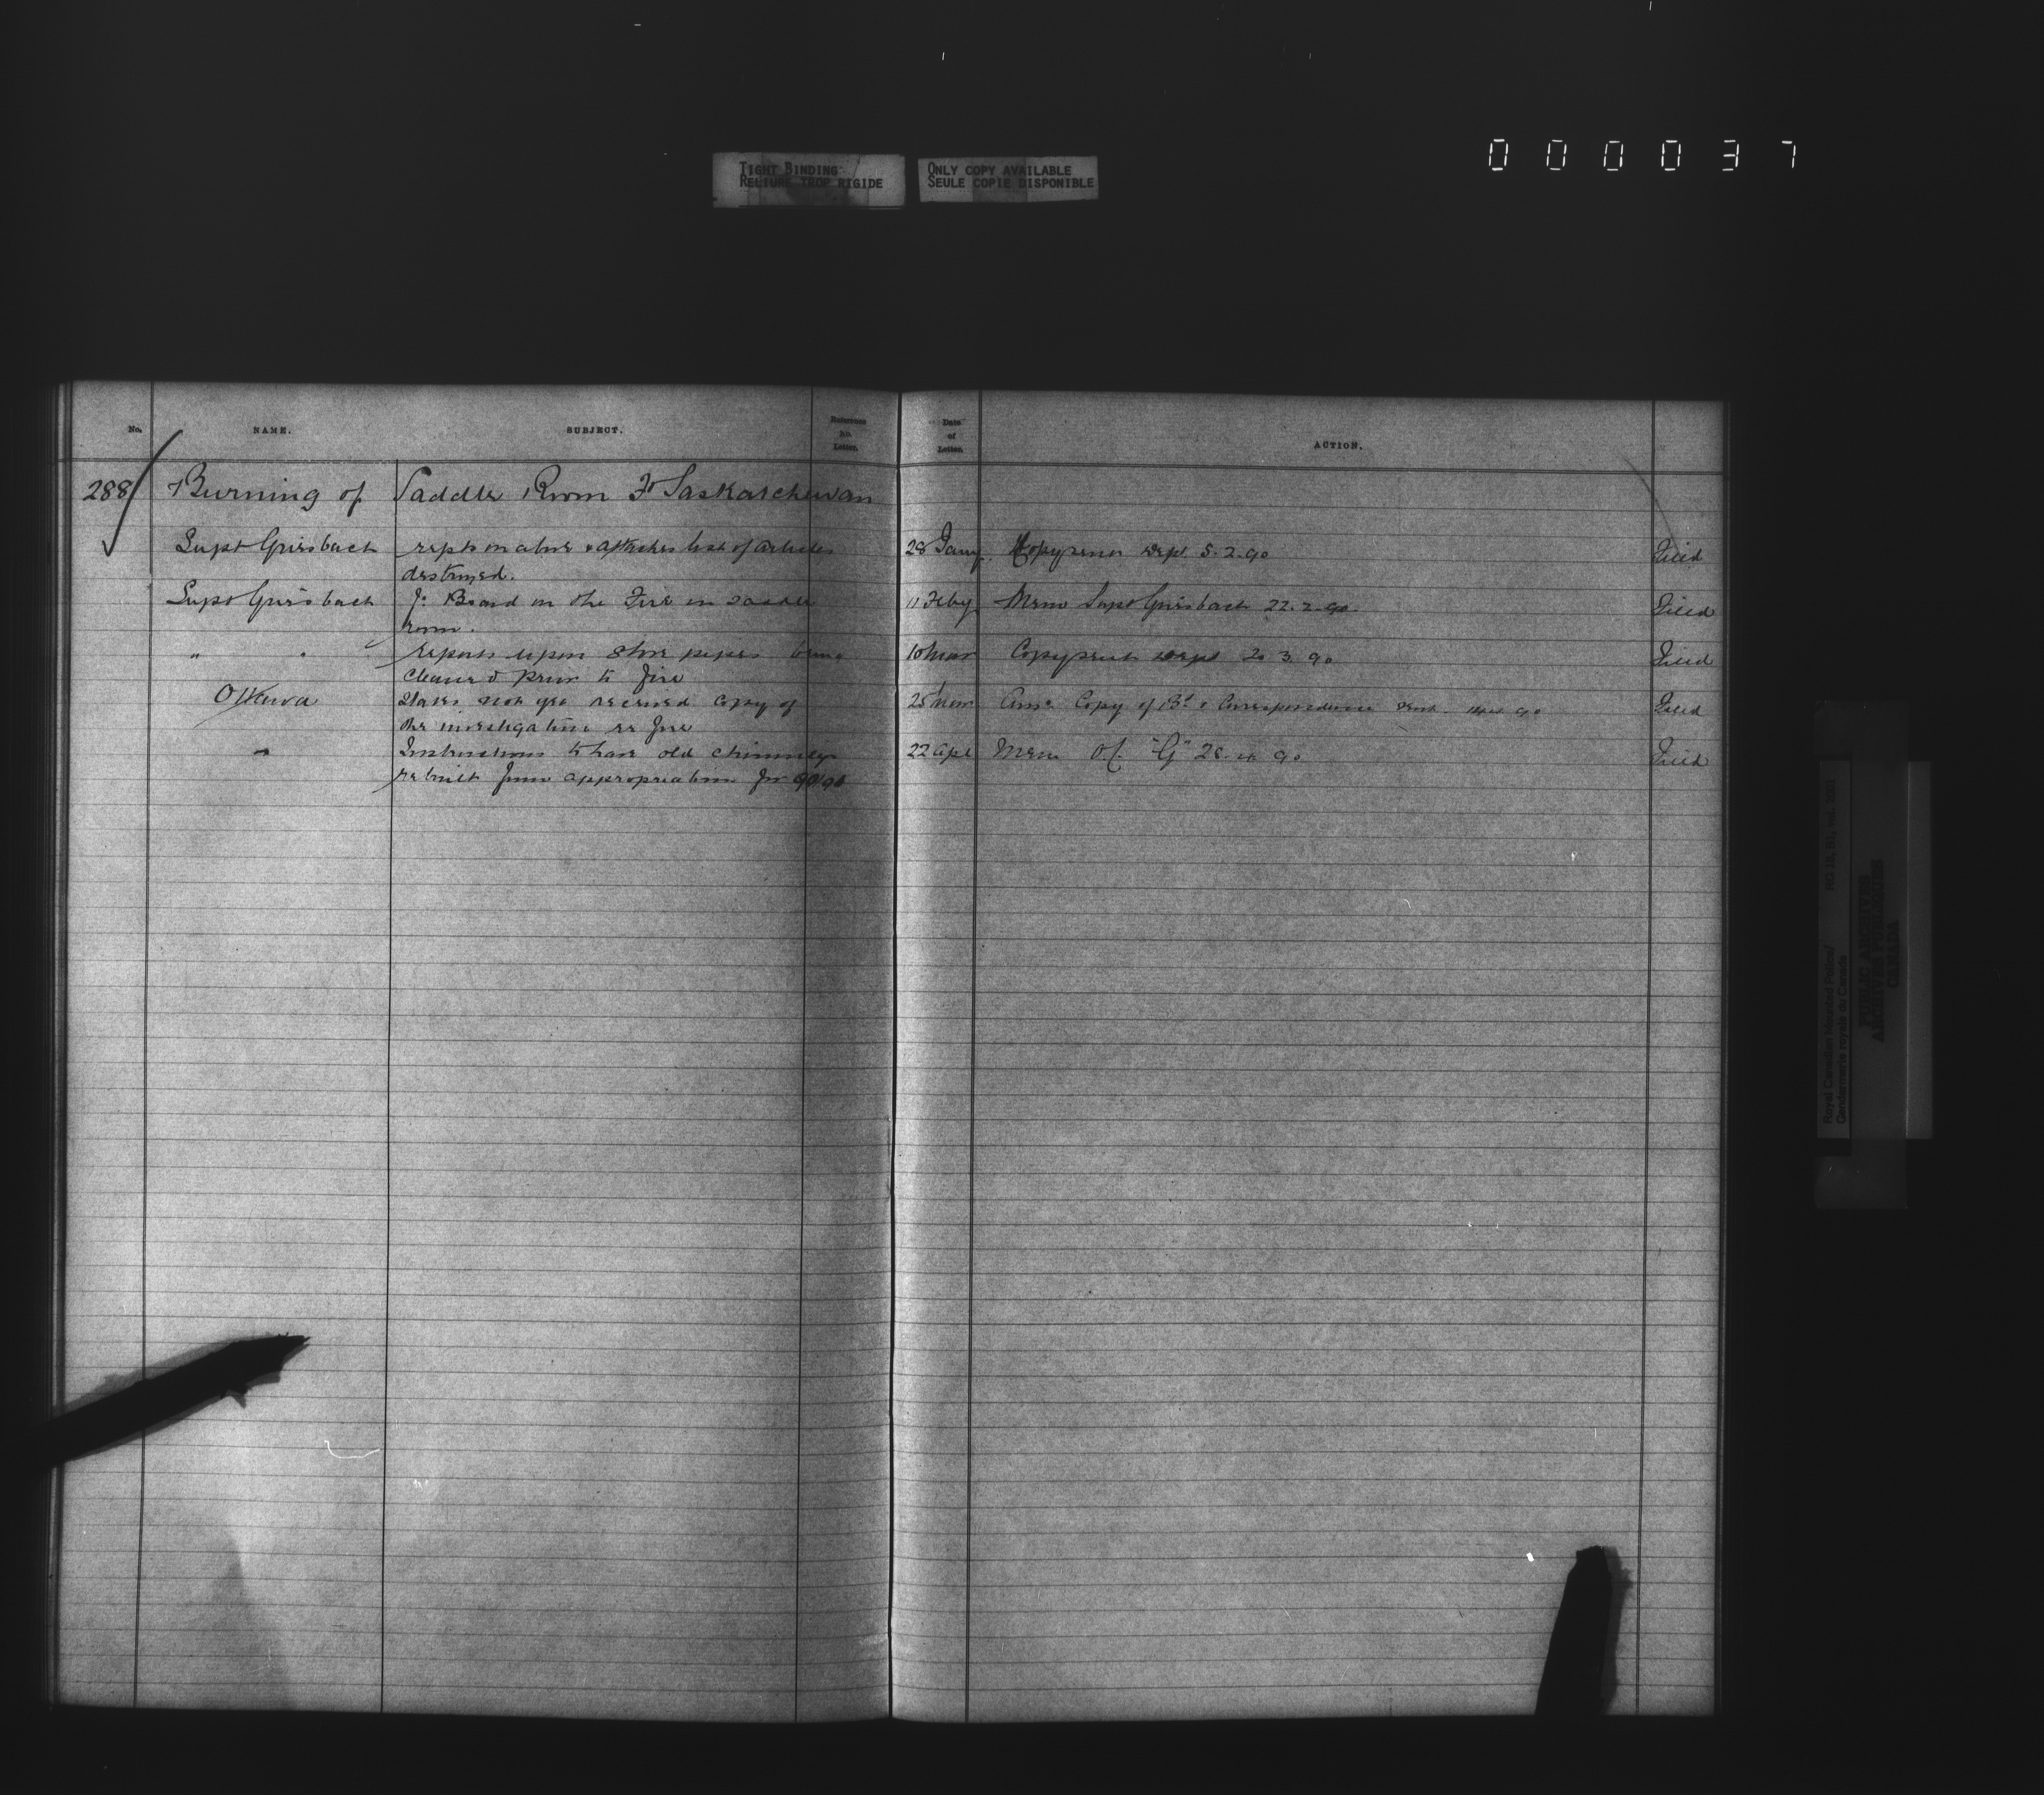 000037
TIGHT BINDING
RELIURE TROP RIGIDE
ONLY COPY AVAILABLE
SEULE COPIE DISPONIBLE
No. NAME. SUBJECT. Reference No. Letter. Date of Letter. ACTION.
288 Burning of Saddle Room Ft Saskatchewan
Supt Griesbach repts on above & attaches list of articles 28 Jany Copy sent Dept 5.2.90 Filed
destroyed.
Supt Griesbach Board on the Fire in Saddle 11 Feby Memo Supt Griesbach 22.2.90 Filed
room.
" " reports upon stove pipes being 10 Mar Copy sent Dept 20 3 90 Filed
cleaned prior to fire
Ottawa States not yet received copy of 25 Mar Copy of Bd & Correspondence sent 90 Filed
the investigation re fire
" Instructions to have old chimneys 22 Apl Memo O.C. "G" 28 90 Filed
rebuilt from appropriation for 90/91
Royal Canadian Mounted Police/
Gendarmerie royale du Canada
RG 18, B1, vol.
PUBLIC ARCHIVES
ARCHIVES PUBLIQUES
CANADA